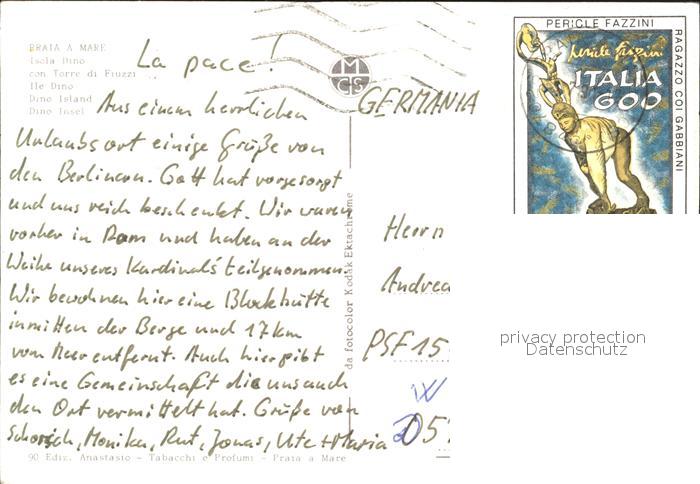 PRAIA A MARE
Isola Dino
con Torre di Fiuzzi
Ile Dino
Dino Island
Dino Insel
La pace!
Aus einem herrlichen
Urlaubsort einige Grüße von
den Berlinern. Gott hat vorgesorgt
und uns reich beschenkt. Wir waren
vorher in Rom und haben an der
Weihe unseres Kardinals teilgenommen.
Wir bewohnen hier eine Blockhütte
inmitten der Berge und 17km
vom Meer entfernt. Auch hier gibt
es eine Gemeinschaft die uns auch
den Ort vermittelt hat. Grüße von
Schorsch, Monika, Rut, Jonas, Ute + Maria
90 Ediz. Anastasio - Tabacchi e Profumi - Praia a Mare
MCS
da fotocolor Kodak Ektachrome
GERMANIA
Herrn
Andrea
PSF 15
05
PERICLE FAZZINI
RAGAZZO COI GABBIANI
pericle fazzini
ITALIA
600
privacy protection
Datenschutz